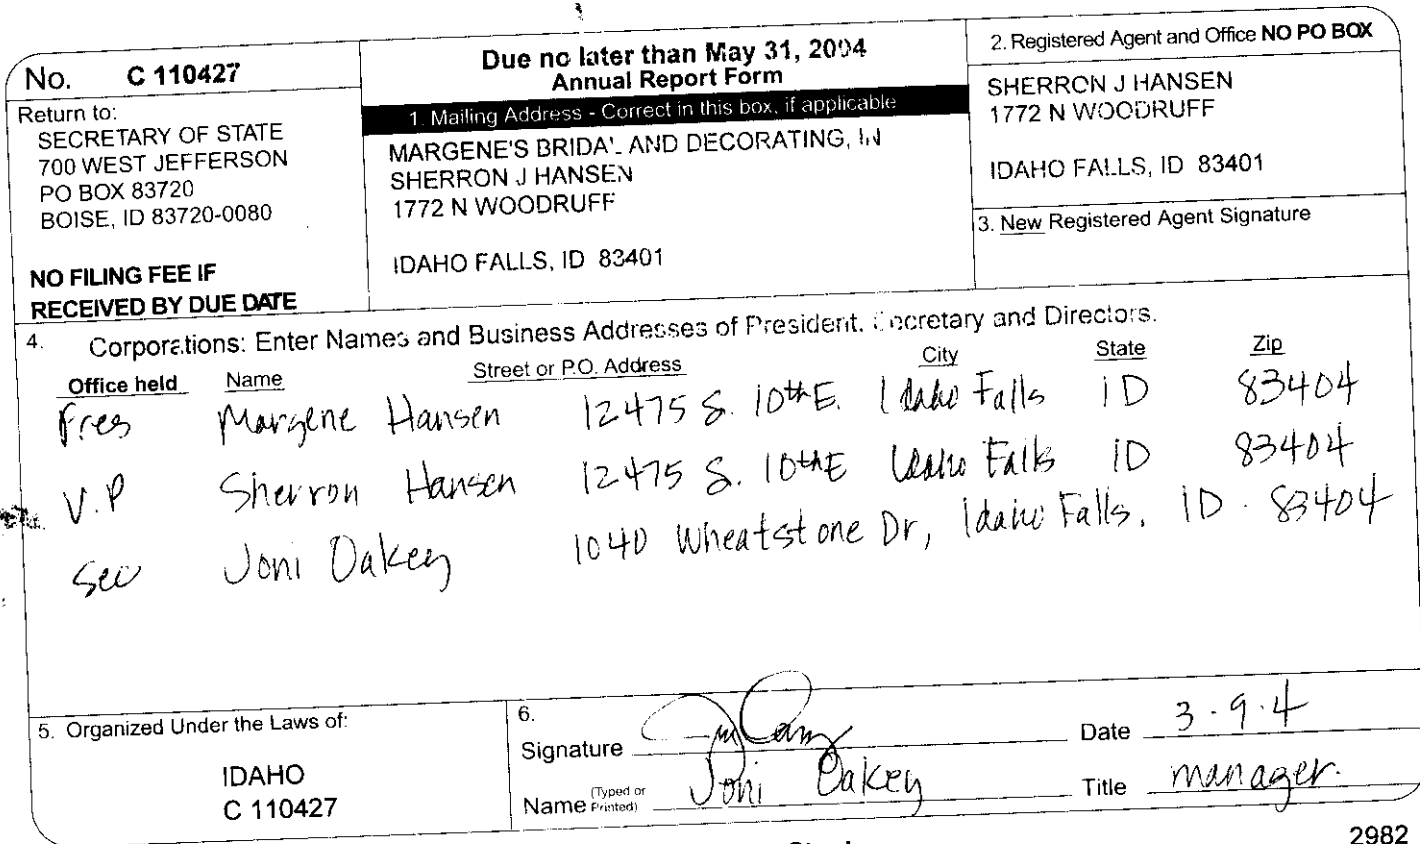 No. C 110427
Return to:
SECRETARY OF STATE
700 WEST JEFFERSON
PO BOX 83720
BOISE, ID 83720-0080
NO FILING FEE IF
RECEIVED BY DUE DATE
Due no later than May 31, 2004
Annual Report Form
1. Mailing Address - Correct in this box, if applicable
MARGENE'S BRIDAL AND DECORATING, IN
SHERRON J HANSEN
1772 N WOODRUFF
IDAHO FALLS, ID 83401
2. Registered Agent and Office NO PO BOX
SHERRON J HANSEN
1772 N WOODRUFF
IDAHO FALLS, ID 83401
3. New Registered Agent Signature
4. Corporations: Enter Names and Business Addresses of President, Secretary and Directors.
Office held Name Street or P.O. Address City State Zip
Pres Margene Hansen 12475 S. 10th E. Idaho Falls ID 83404
V.P Sherron Hansen 12475 S. 10th E Idaho Falls ID 83404
Sec Joni Oakey 1040 Wheatstone Dr, Idaho Falls, ID. 83404
5. Organized Under the Laws of:
IDAHO
C 110427
6.
Signature
Date 3.9.4
Name (Typed or Printed) Joni Oakey
Title manager.
2982